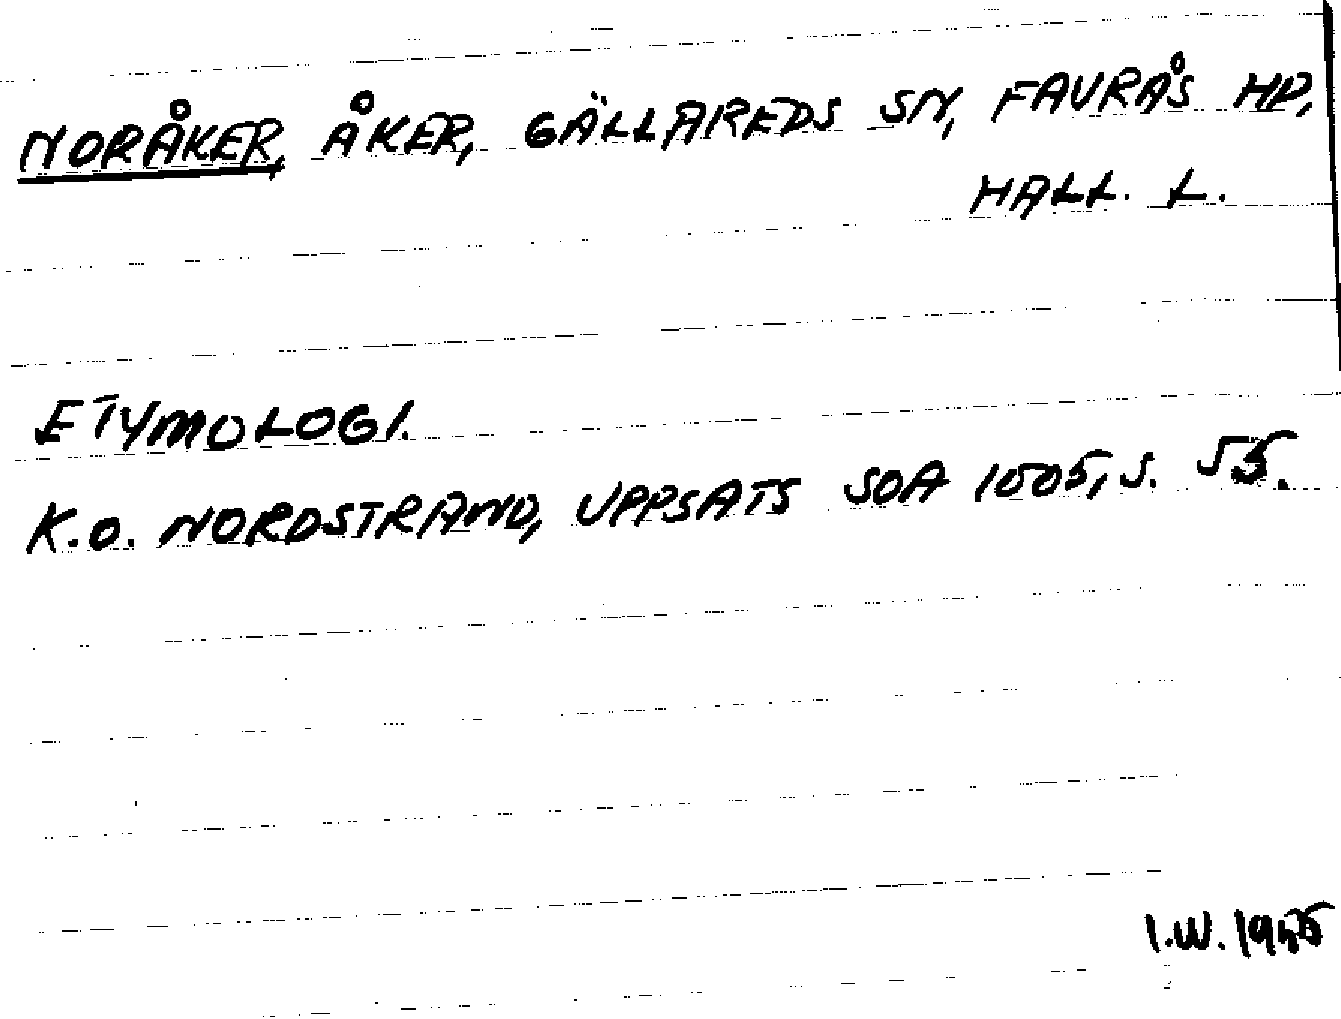 NORÅKER, ÅKER, GÄLLAREDS SN, FAURÅS HD,
HALL. L.
ETYMOLOGI.
K.O. NORDSTRAND, UPPSATS SOA 1005, S. 55.
I.W.